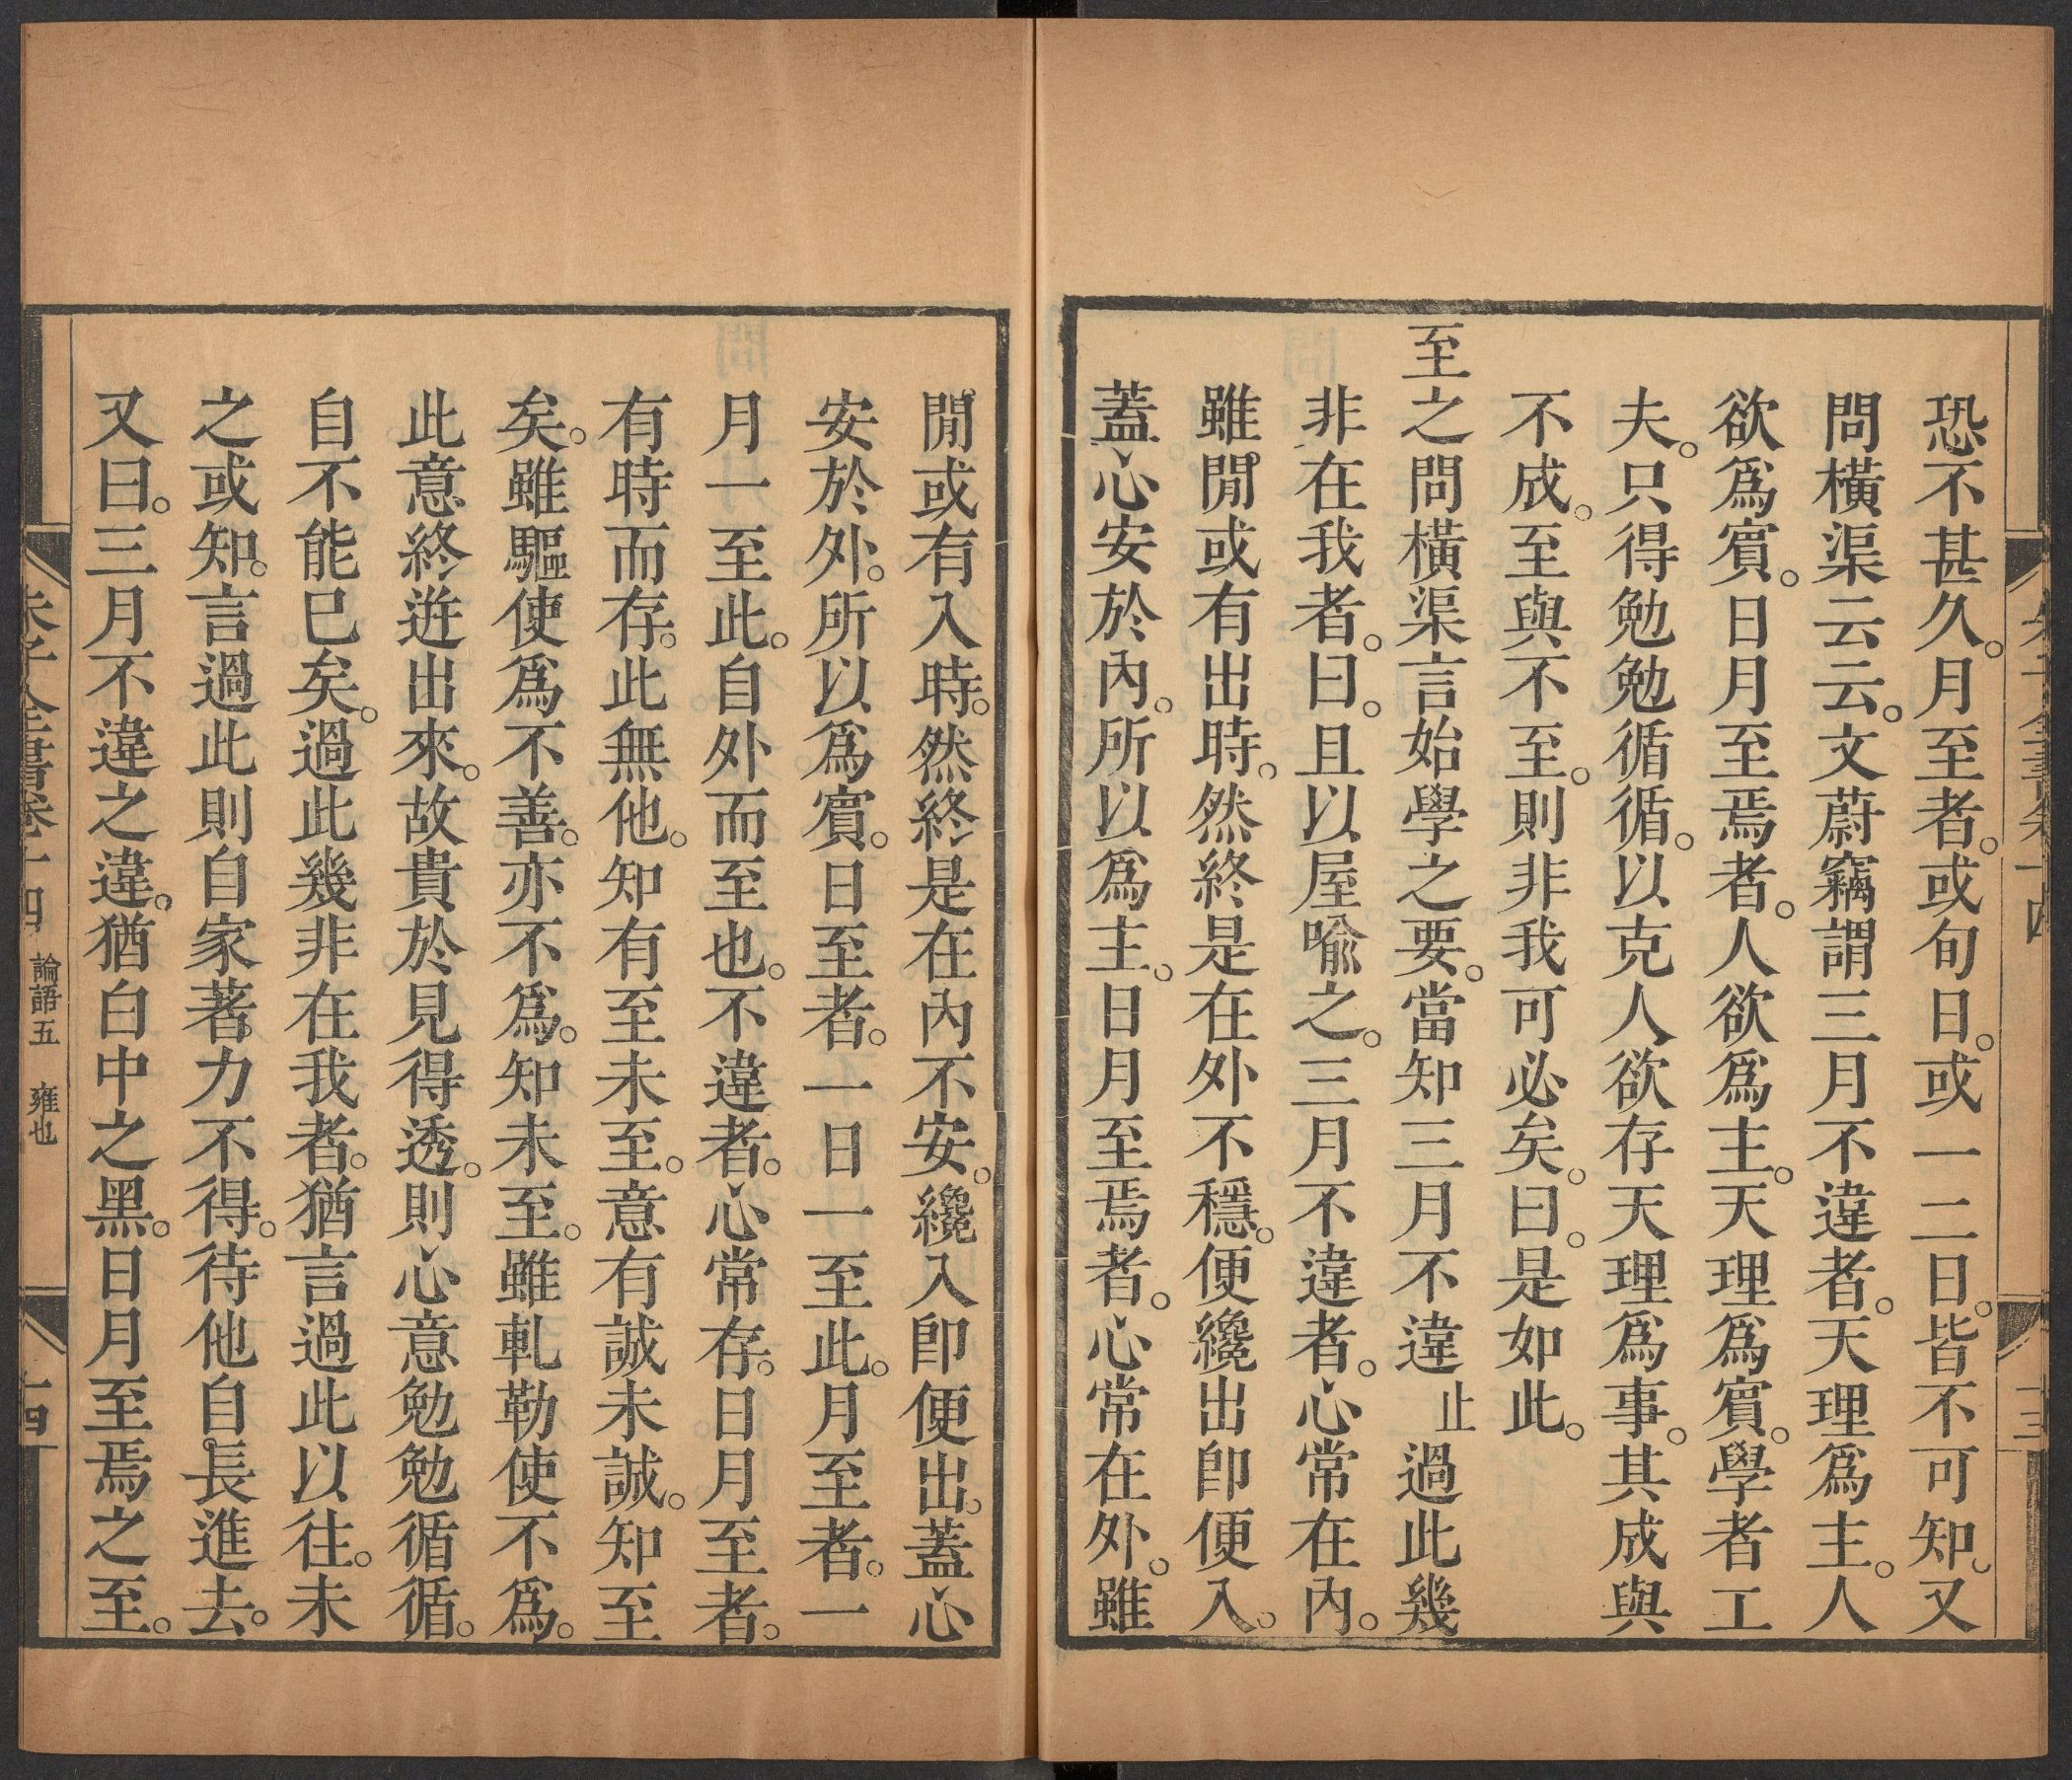 恐不甚久。月至者。或旬日。或一二日。皆不可知。又
問橫渠云云。文蔚竊謂三月不違者。天理爲主。人
欲爲賓。日月至焉者。人欲爲主。天理爲賓。學者工
夫。只得勉勉循循。以克人欲存天理爲事。其成與
不成。至與不至。則非我可必矣。曰。是如此。
至之問橫渠言始學之要。當知三月不違止過此幾
非在我者。曰。且以屋喻之。三月不違者。心常在內。
雖閒或有出時。然終是在外不穩。便纔出卽便入。
蓋心安於內。所以爲主。日月至焉者。心常在外。雖
閒或有入時。然終是在內不安。纔入卽便出。蓋心
安於外。所以爲賓。日至者。一日一至此。月至者。一
月一至此。自外而至也。不違者。心常存。日月至者。
有時而存。此無他。知有至未至。意有誠未誠。知至
矣。雖驅使爲不善。亦不爲。知未至。雖軋勒使不爲。
此意終迸出來。故貴於見得透。則心意勉勉循循。
自不能已矣。過此幾非在我者。猶言過此以往。未
之或知。言過此則自家著力不得。待他自長進去。
又曰。三月不違之違。猶白中之黑。日月至焉之至。
朱子全書卷十四 論語五 雍也 十四